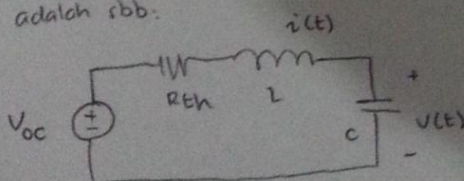 adalah sbb:
i(t)
+
Rth
L
Voc
+
-
C
V(t)
-